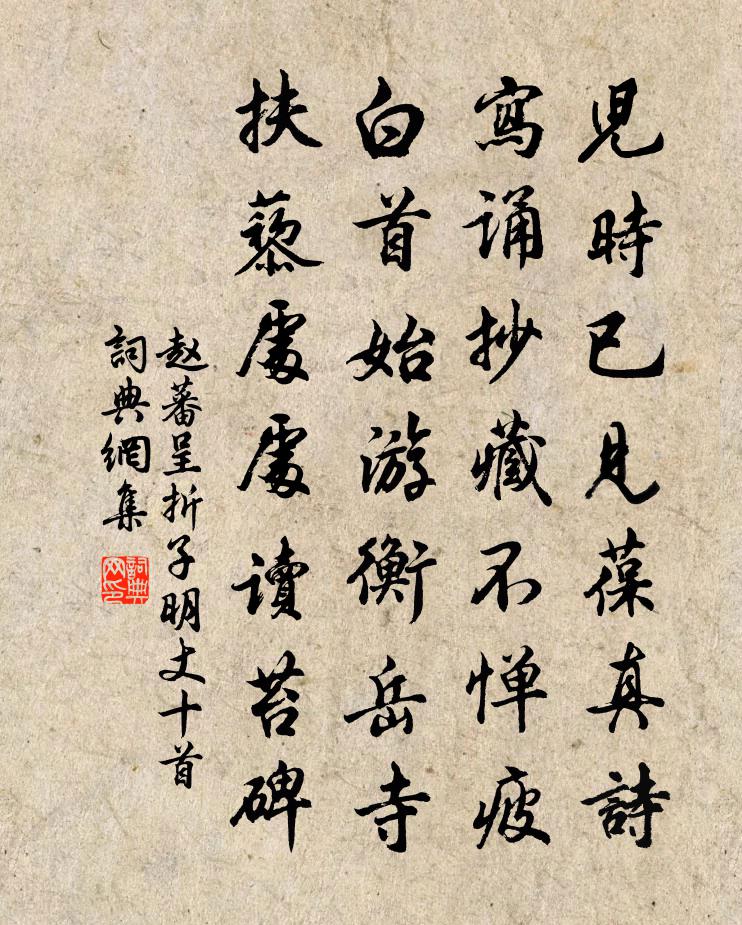 兒時已見葆真詩
寫誦抄藏不惮疲
白首始游衡岳寺
扶藜處處讀苔碑
赵蕃呈折子明丈十首
詞典網集
詞典網印